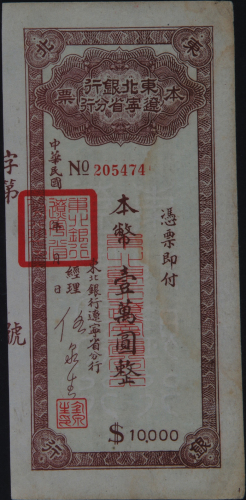 東北
本票
東北銀行
遼寧省分行
憑票即付
本幣壹萬圓整
№ 205474
中華民國 年 月 日
東北銀行遼寧省分行
經理
字第 號
$10,000
銀行